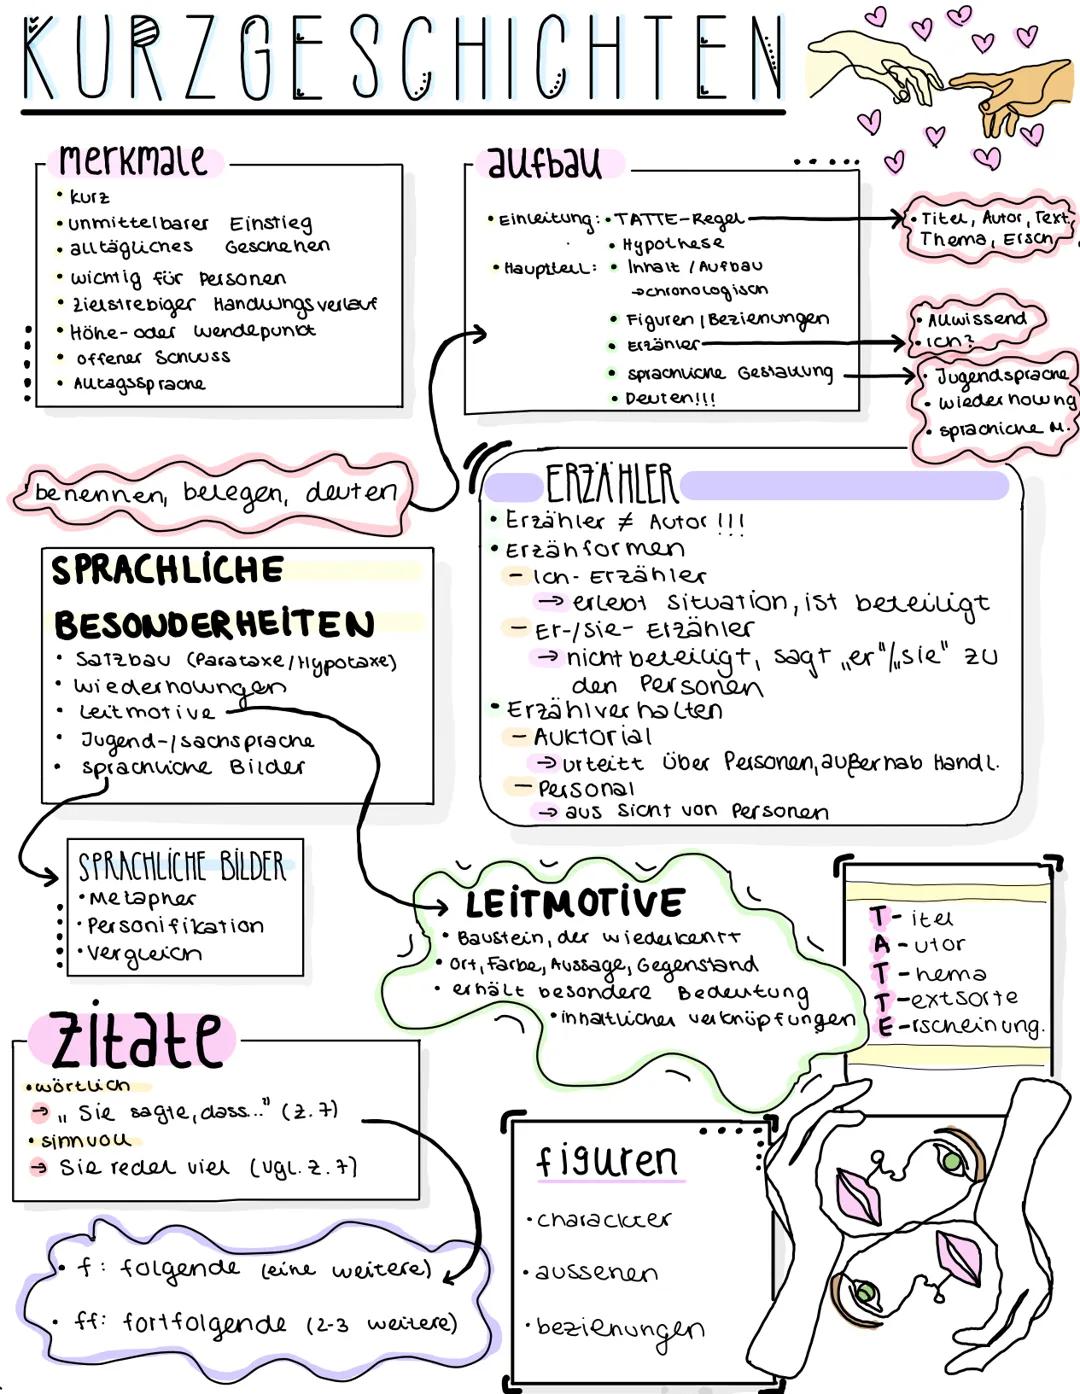 KURZGESCHICHTEN
merkmale
• kurz
• unmittelbarer Einstieg
• alltägliches Geschehen
• wichtig für Personen
• zielstrebiger Handlungsverlauf
• Höhe- oder Wendepunkt
• offener Schluss
• Alltagssprache
aufbau
• Einleitung: • TATTE-Regel
• Hypothese
• Hauptteil: • Inhalt / Aufbau
→ chronologisch
• Figuren / Beziehungen
• Erzähler
• sprachliche Gestaltung
• Deuten!!!
• Titel, Autor, Text,
Thema, Ersch.
• Allwissend
• ich?
• Jugendsprache
• wiederholung
• sprachliche M.
benennen, belegen, deuten
ERZÄHLER
• Erzähler ≠ Autor !!!
• Erzählformen
- Ich- Erzähler
→ erlebt Situation, ist beteiligt
- Er-/sie- Erzähler
→ nicht beteiligt, sagt „er"/„sie" zu
den Personen
• Erzählverhalten
- Auktorial
→ urteilt über Personen, außerhalb Handl.
- Personal
→ aus Sicht von Personen
SPRACHLICHE
BESONDERHEITEN
• Satzbau (Parataxe/Hypotaxe)
• wiederholungen
• Leitmotive
• Jugend-/sachsprache
• sprachliche Bilder
SPRACHLICHE BILDER
• Metapher
• Personifikation
• vergleich
LEITMOTIVE
• Baustein, der wiederkehrt
• Ort, Farbe, Aussage, Gegenstand
• erhält besondere Bedeutung
• inhaltlicher verknüpfungen
T- itel
A- utor
T- hema
T- extsorte
E- rscheinung.
Zitate
• wörtlich
→ „ Sie sagte, dass..." (z. 7)
• sinnvoll
→ Sie redet viel (vgl. z. 7)
• f: folgende (eine weitere)
• ff: fortfolgende (2-3 weitere)
figuren
• charackter
• aussehen
• beziehungen